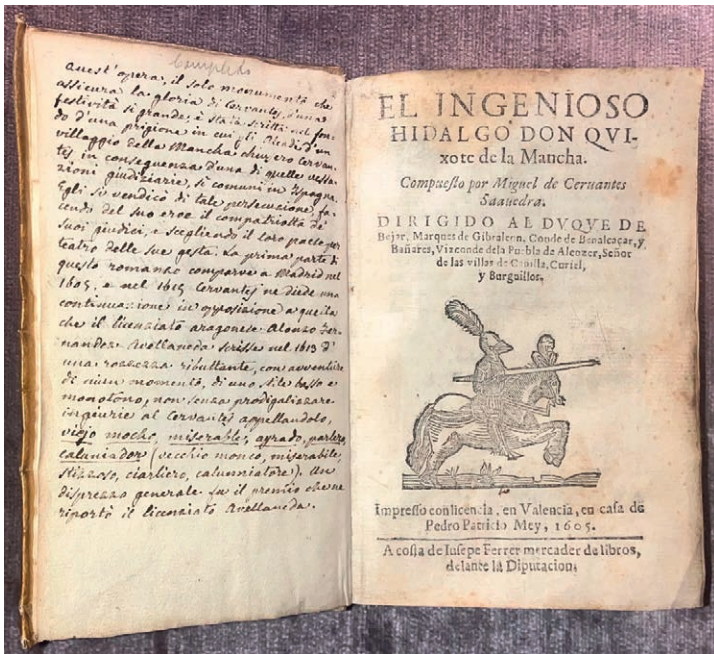 Completo
Quest'opera, il solo monumento che
assicura la gloria di Cervantes, d'una
festività sì grande, è stata scritta nel fon-
do d'una prigione in cui gli Alcadi d'un
villaggio della Mancha chiusero Cervan-
tes in conseguenza d'una di quelle vessa-
zioni giudiziarie, sì comuni in Ispagna.
Egli si vendicò di tale persecuzione, fa-
cendo del suo eroe il compatriotta de'
suoi giudici, e scegliendo il loro paese per
teatro delle sue gesta. La prima parte di
questo romanzo comparve a Madrid nel
1605, e nel 1615 Cervantes ne diede una
continuazione in opposizione a quella
che il licenziato aragonese Alonzo Fer-
nandez Avellaneda scrisse nel 1613 d'
una rozzezza ributtante, con avventure
di niun momento, di uno stile basso e
monotono, non senza prodigalizzare
ingiurie al Cervantes appellandolo,
viejo mocho, miserable, ayrado, parlero,
caluniador (vecchio monco, miserabile,
stizzoso, ciarliero, calunniatore). Un
disprezzo generale fu il premio che ne
riportò il licenziato Avellaneda.
EL INGENIOSO
HIDALGO DON QVI-
xote de la Mancha.
Compuesto por Miguel de Ceruantes
Saauedra.
DIRIGIDO AL DVQVE DE
Bejar, Marques de Gibraleon, Conde de Benalcaçar, y
Bañares, Vizconde dela Puebla de Alcozer, Señor
de las villas de Capilla, Curiel,
y Burguillos.
Impresso con licencia, en Valencia, en casa de
Pedro Patricio Mey, 1605.
A costa de Iusepe Ferrer mercader de libros,
delante la Diputacion.